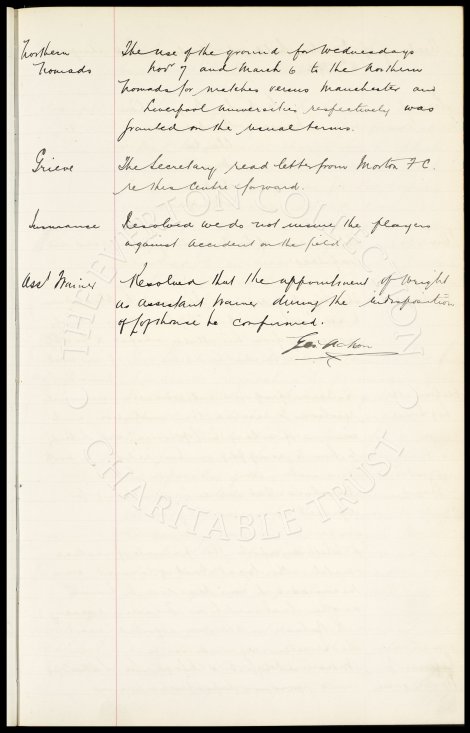 Northern Nomads
The use of the ground for Wednesdays
Nov 7 and March 6 to the Northern
Nomads for matches versus Manchester and
Liverpool Universities respectively was
granted on the usual terms.
Grieve
The Secretary read letter from Morton F C.
re this Centre forward.
Insurance
Resolved we do not insure the players
against accident on the field
Asst Trainer
Resolved that the appointment of Wright
as assistant trainer during the indisposition
of be confirmed.
Geo
THE EVERTON COLLECTION
CHARITABLE TRUST